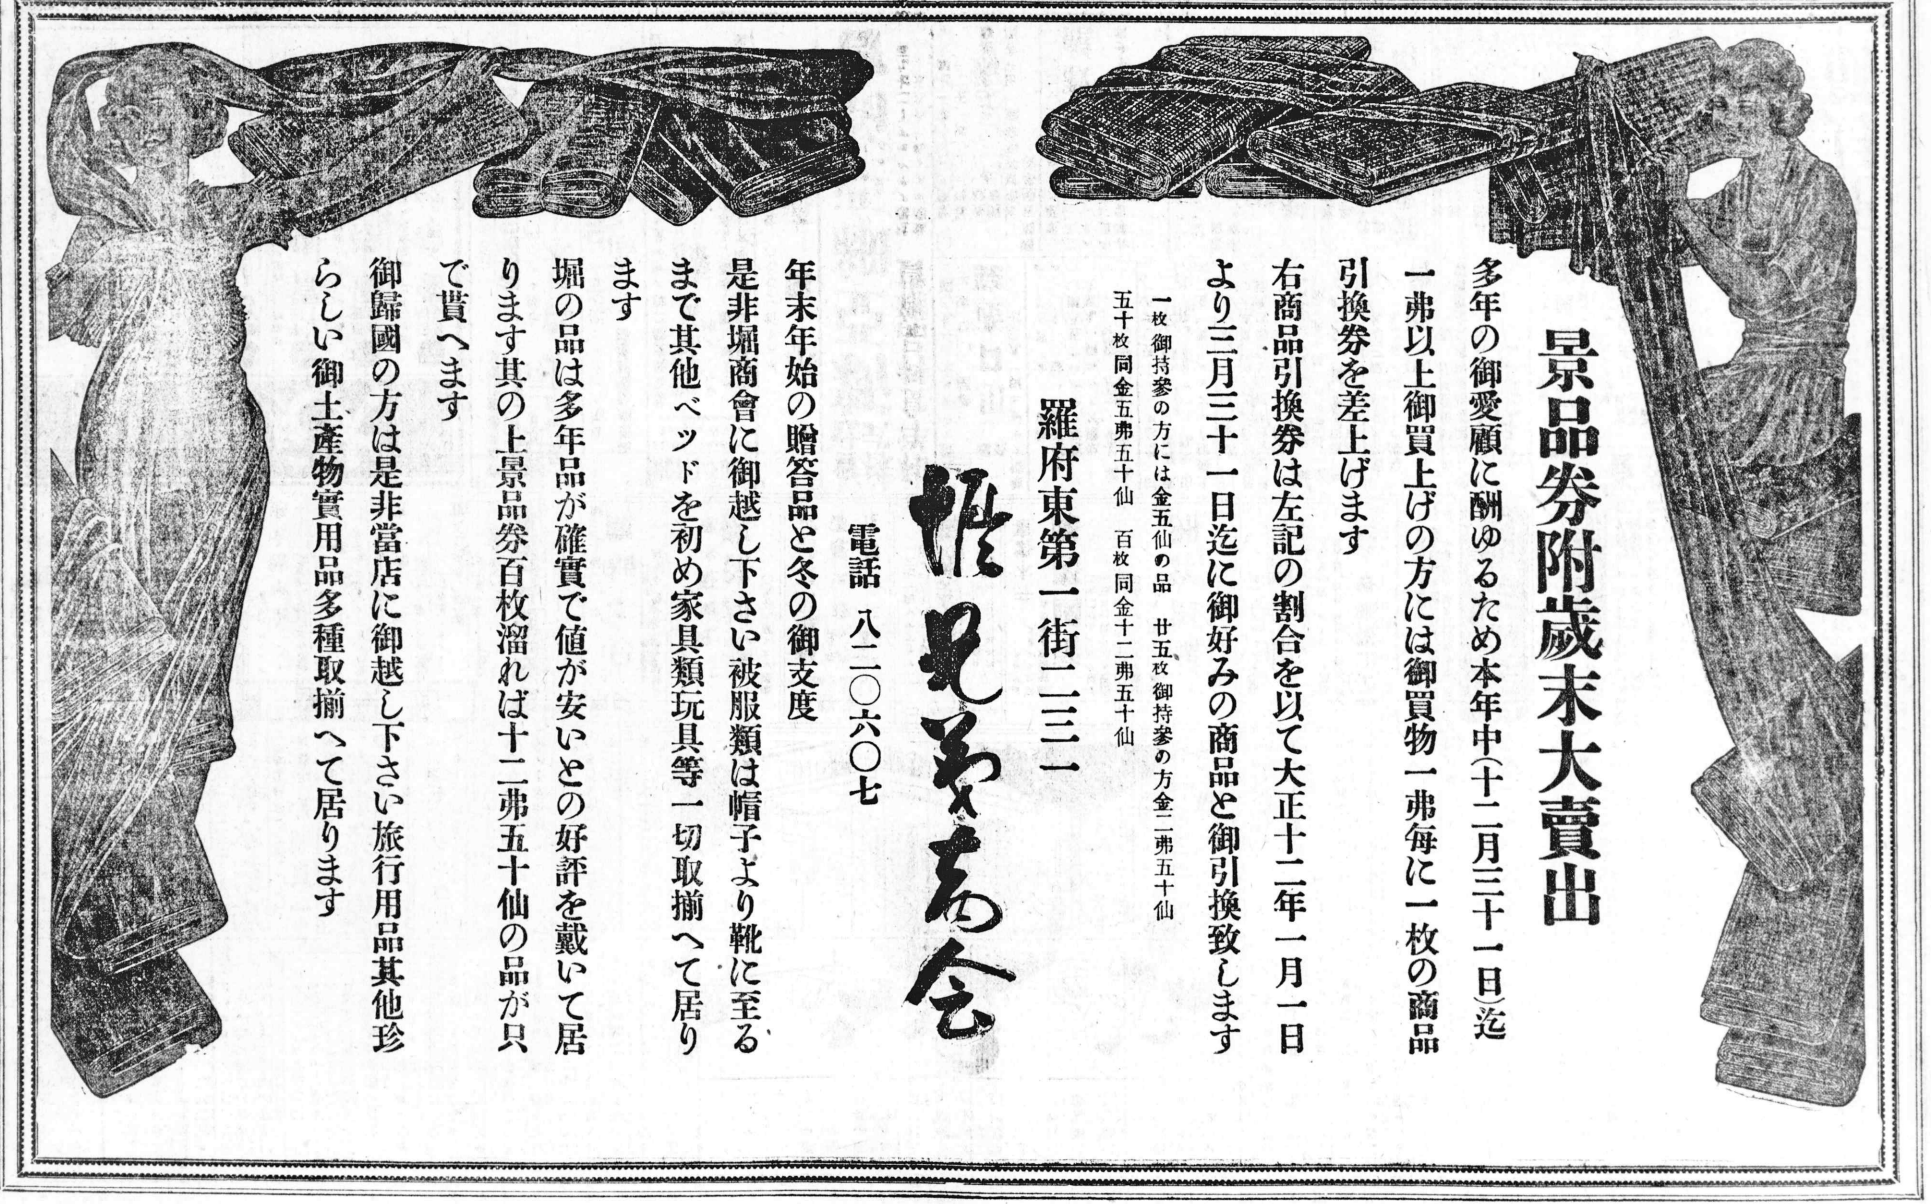 景品券附歲末大賣出
多年の御愛顧に酬ゆるため本年中(十二月三十一日)迄
一弗以上御買上げの方には御買物一弗每に一枚の商品
引換券を差上げます
右商品引換券は左記の割合を以て大正十二年一月一日
より三月三十一日迄に御好みの商品と御引換致します
一枚御持參の方には金五仙の品 廿五枚御持參の方金二弗五十仙
五十枚同金五弗五十仙 百枚同金十二弗五十仙
羅府東第一街二三一
堀兄弟商会
電話 八二〇六〇七
年末年始の贈答品と冬の御支度
是非堀商會に御越し下さい被服類は帽子より靴に至る
まで其他ベッドを初め家具類玩具等一切取揃へて居り
ます
堀の品は多年品が確實で値が安いとの好評を戴いて居
ります其の上景品券百枚溜れば十二弗五十仙の品が只
で貰へます
御歸國の方は是非當店に御越し下さい旅行用品其他珍
らしい御土產物實用品多種取揃へて居ります